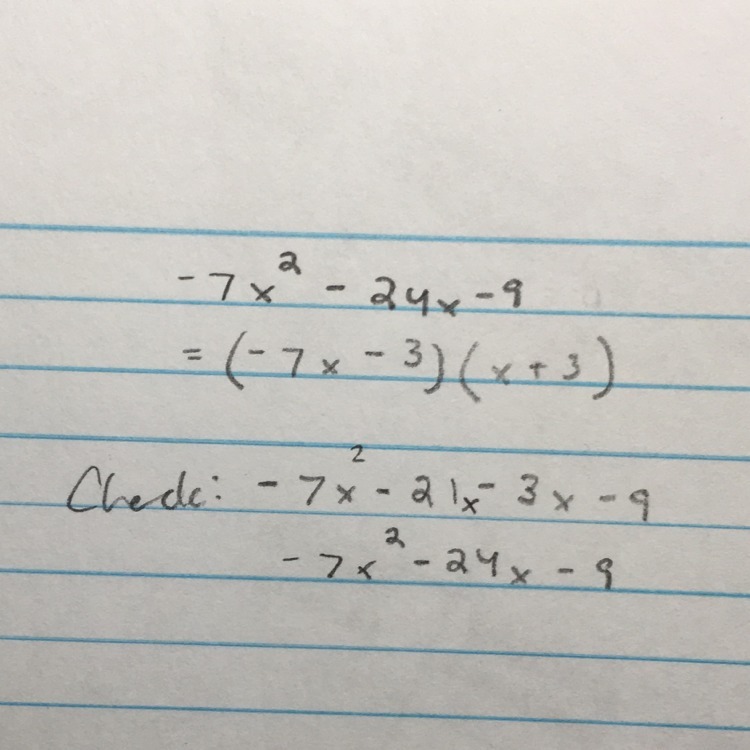 -7x² - 24x - 9
= (-7x - 3)(x + 3)
Check: -7x² - 21x - 3x - 9
-7x² - 24x - 9